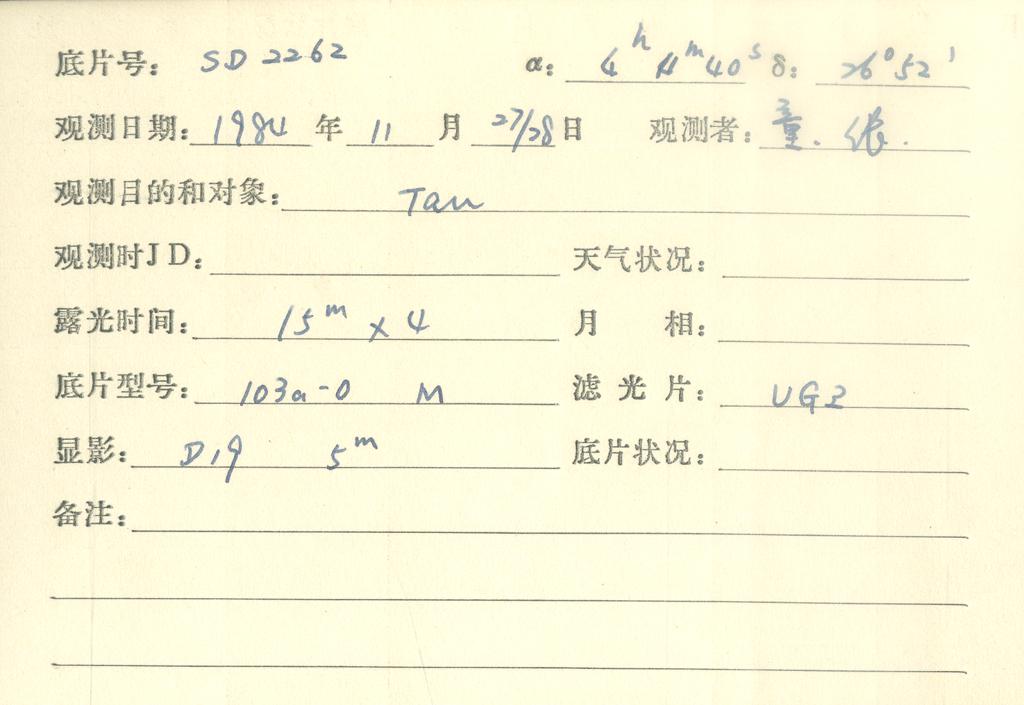 底片号: SD 2262 α: 4ʰ 4ᵐ 40ˢ δ: 26°52′
观测日期: 1984 年 11 月 27/28 日 观测者: 童. 张.
观测目的和对象: Tau
观测时JD: 天气状况:
露光时间: 15ᵐ × 4 月 相:
底片型号: 103a-O M 滤光片: UG2
显影: D19 5ᵐ 底片状况:
备注: